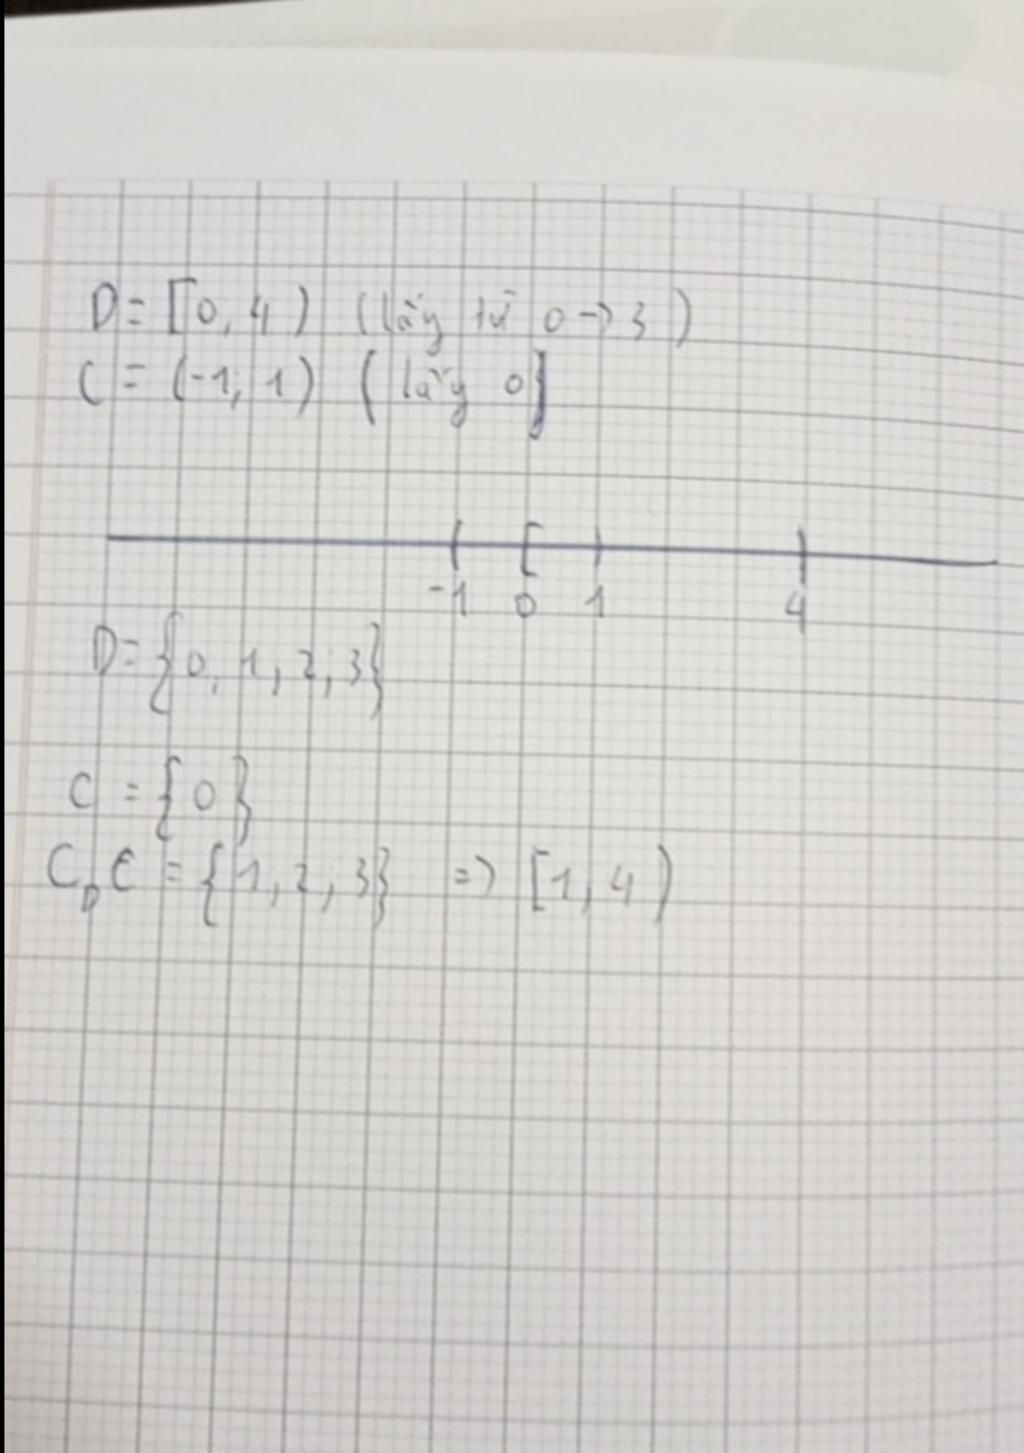 D = [0, 4) (lấy từ 0 -> 3)
C = (-1, 1) (lấy 0)
-1 0 1 4
D = {0, 1, 2, 3}
C = {0}
C_D C = {1, 2, 3} => [1, 4)